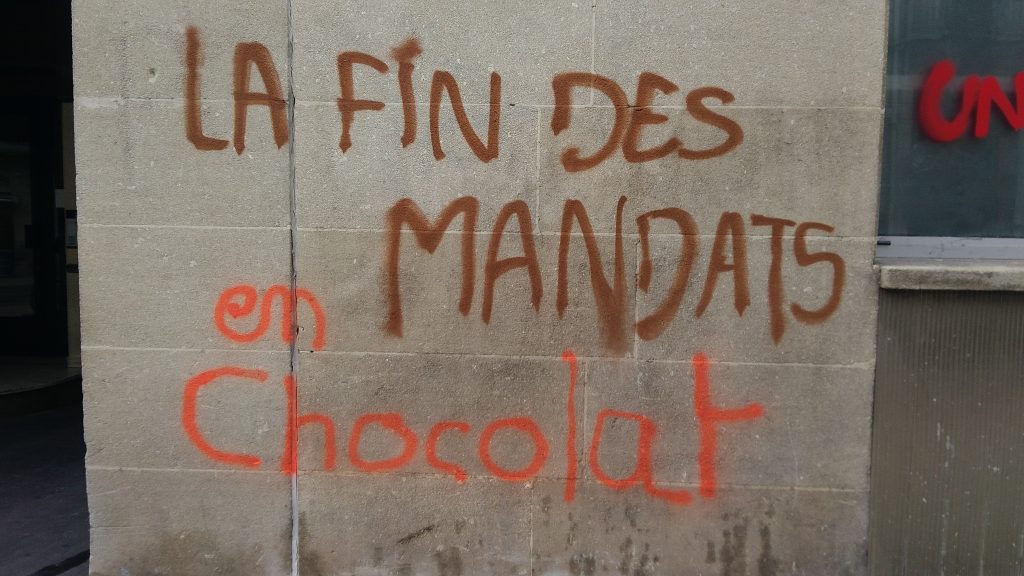 LA FIN DES
MANDATS
en
Chocolat
UN